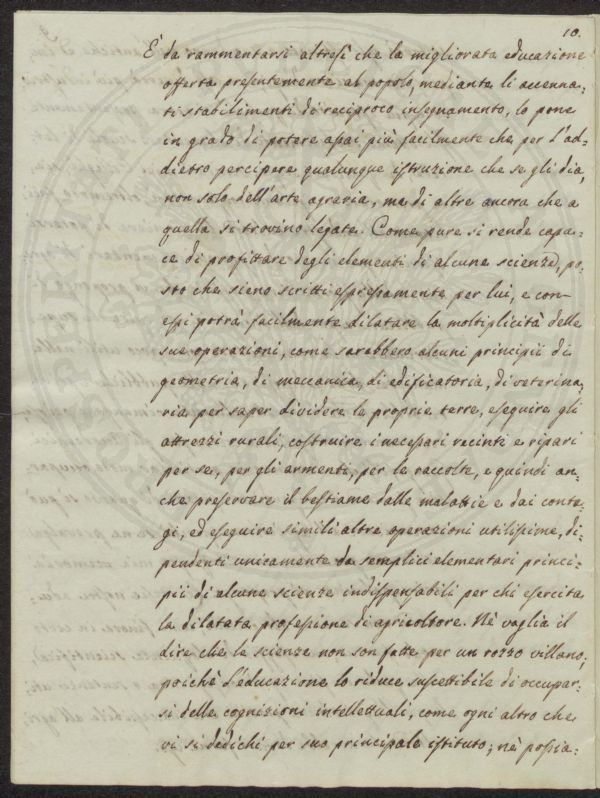 10.
È da rammentarsi altresì che la migliorata educazione
offerta presentemente al popolo, mediante li accenna-
ti stabilimenti di reciproco insegnamento, lo pone
in grado di potere assai più facilmente che per l'ad-
dietro percipere qualunque istruzione che se gli dia,
non solo dell'arte agraria, ma di altre ancora che a
quella si trovino legate. Come pure si rende capa-
ce di profittare degli elementi di alcune scienze, po-
sto che sieno scritti espressamente per lui, e con
essi potrà facilmente dilatare la moltiplicità delle
sue operazioni, come sarebbero alcuni principii di
geometria, di meccanica, di edificatoria, di veterina-
ria per saper dividere le proprie terre, eseguire gli
attrezzi rurali, costruire i necessari recinti e ripari
per se, per gli armenti, per le raccolte, e quindi an-
che preservare il bestiame dalle malattie e dai conta-
gi, ed eseguire simili altre operazioni utilissime, di-
pendenti unicamente da semplici elementari princi-
pii di alcune scienze indispensabili per chi esercita
la dilatata professione di agricoltore. Nè vaglia il
dire che le scienze non son fatte per un rozzo villano;
poichè l'educazione lo riduce suscettibile di occupar-
si delle cognizioni intellettuali, come ogni altro che
vi si dedichi per suo principale istituto; nè possia-